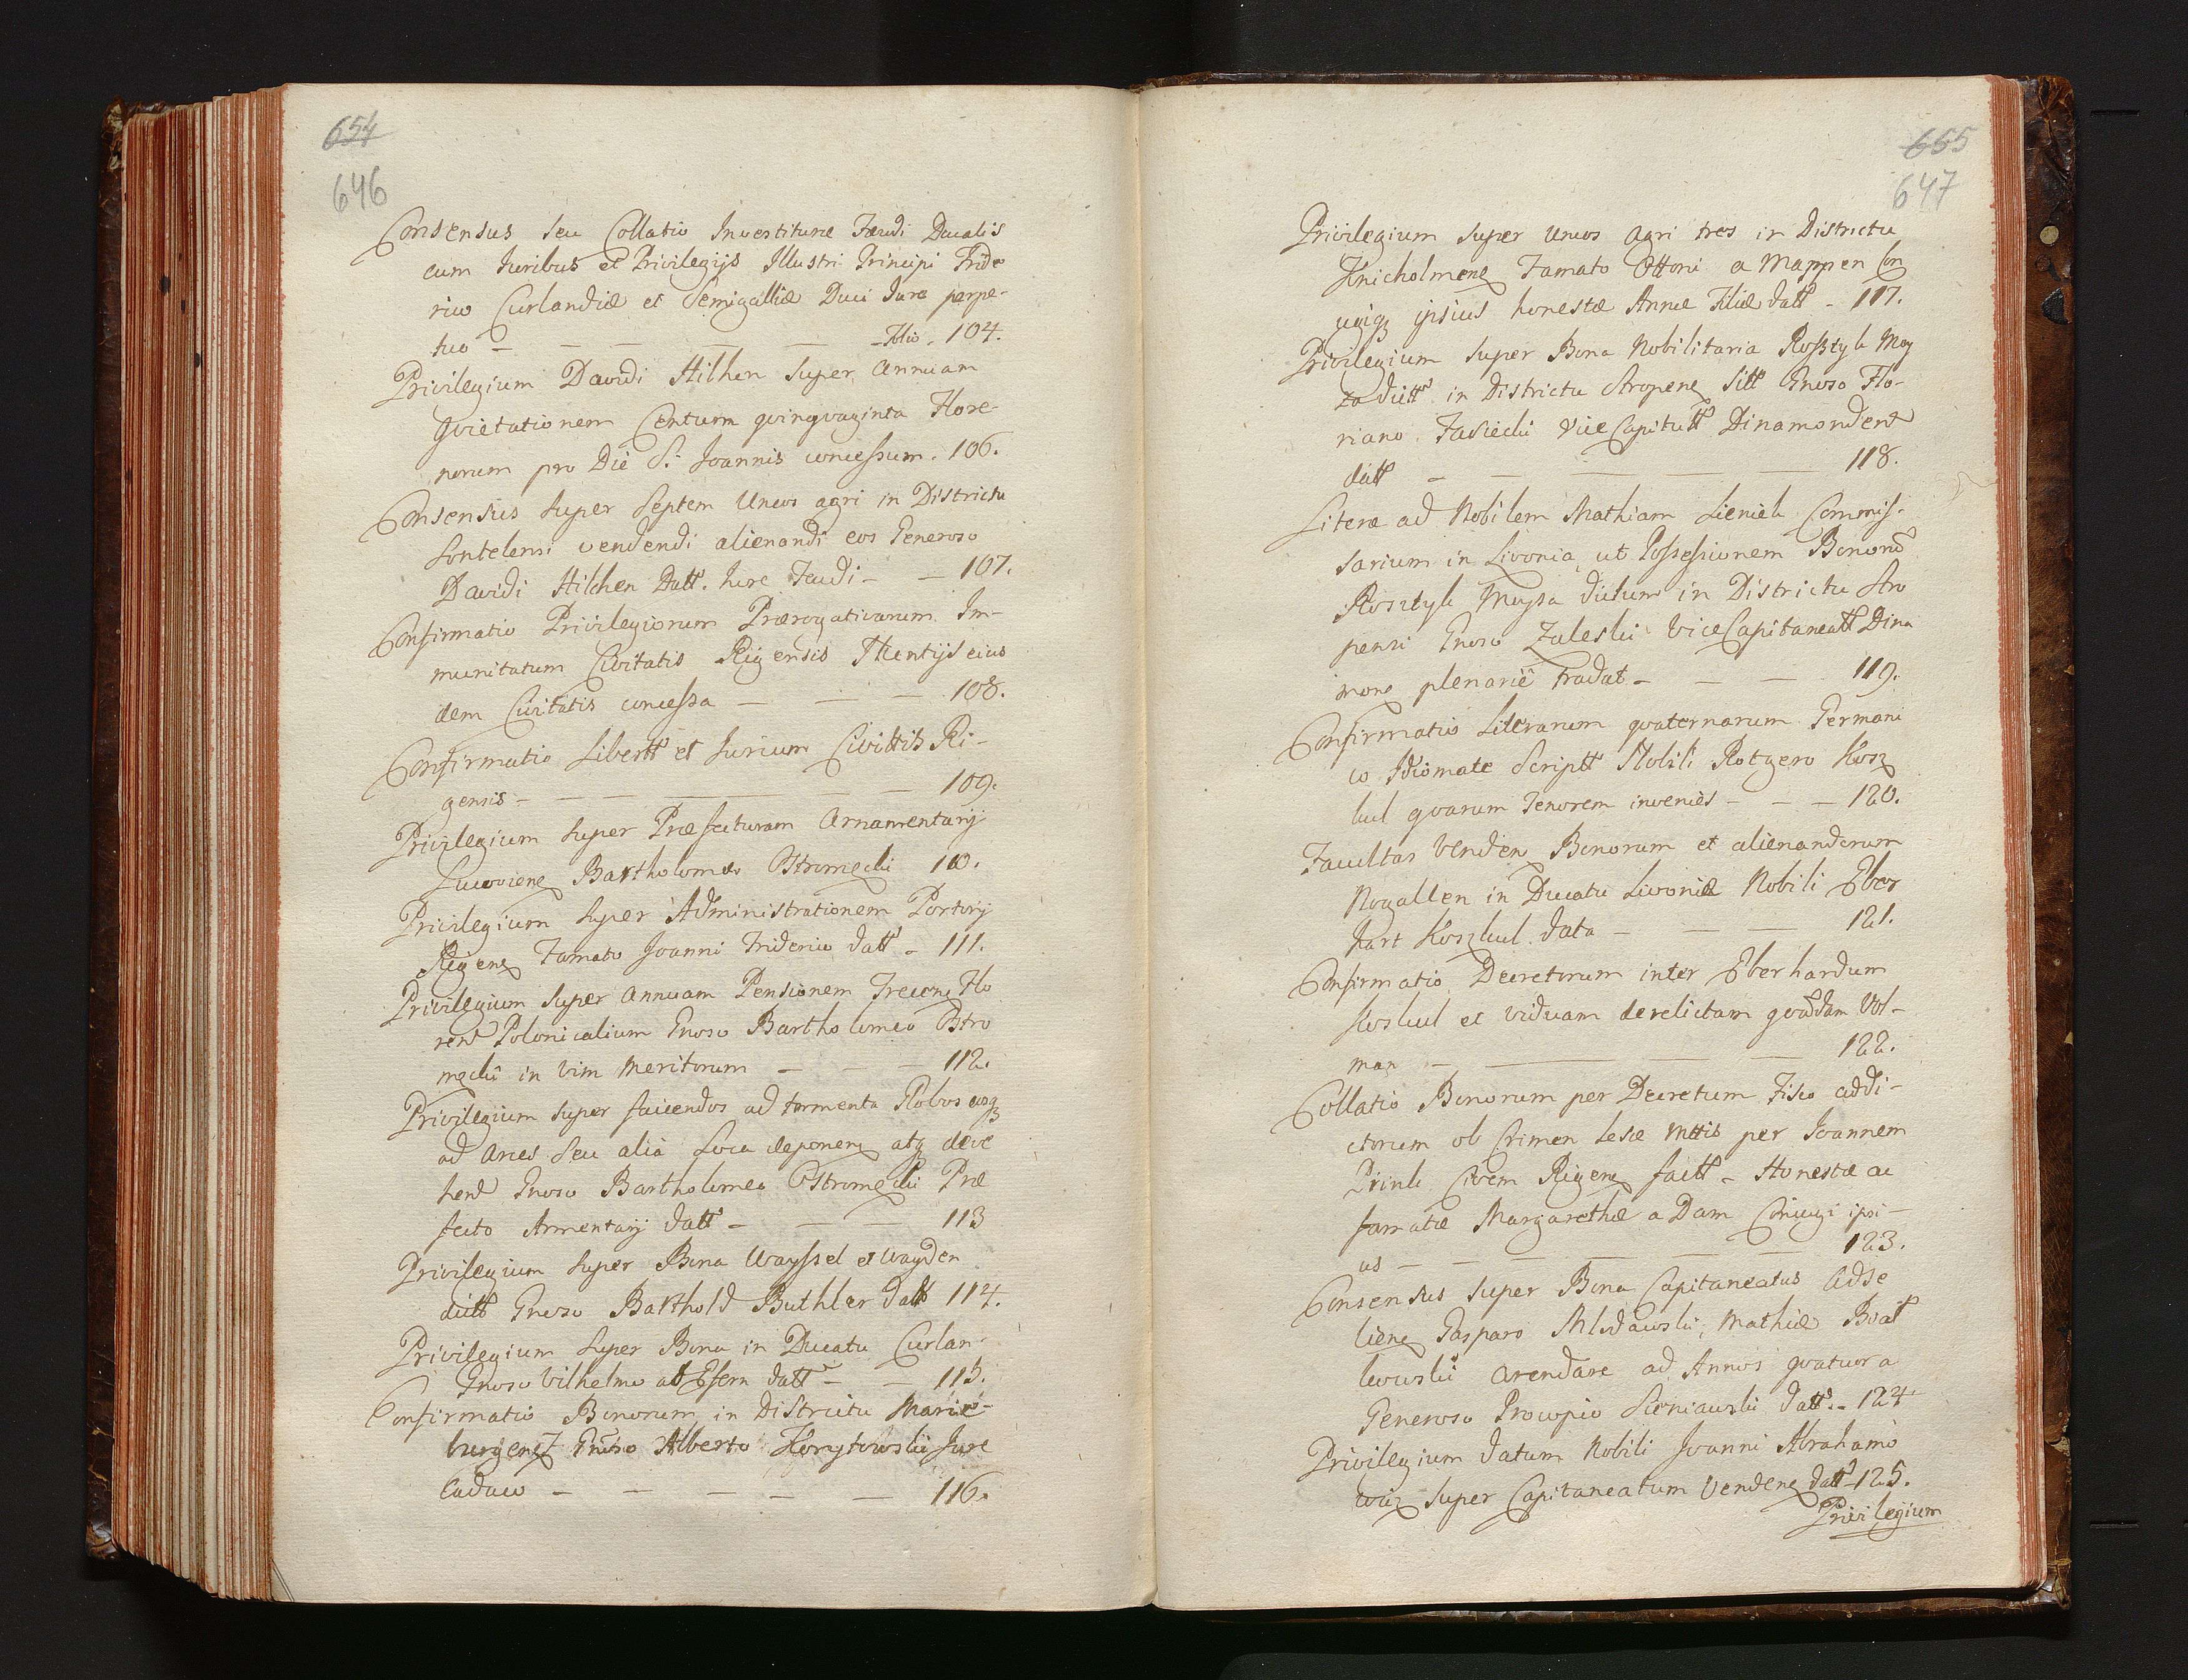 654
646
Consensus seu Collatio Investituræ Fæudi Ducalis
cum Iuribus et Privilegijs Illustri Principi Fride
rico Curlandiæ et Semigalliæ Duci Iure perpe-
tuo - - - - - Folio. 104.
Privilegium Davidi Hilhen super annuam
Qvietationem Centum qvinqvaginta Flore-
norum pro Die S. Joannis concessum. 106.
Consensus super Septem Uncos agri in Districtu
Sontelensi vendendi alienandi eos Generoso
Davidi Hilchen Datt. Iure Feudi - - 107.
Confirmatio Privilegiorum Prærogativarum Im-
munitatum Civitatis Rigensis eius
dem Civitatis concessa - - - 108.
Confirmatio Libertt et Iurium Civittis Ri-
gensis - - - - - - 109.
Privilegium super Præfecturam Armamentarij
Bartholomæo Ostromęcki 110.
Privilegium super Administrationem Portorij
Rigens Famato Joanni Friderico datt - 111.
Privilegium super annuam Pensionem Trecens Flo
rend Polonicalium Gnoso Bartholomeo Ostro
męcki in vim meritorum - - - 112.
Privilegium super faciendos ad tormenta Globos eosq
ad arces seu alia Loca deponens atq deve
hend Gnoso Bartholomeo Ostromęcki Præ
fecto Armentarij datt - - - 113
Privilegium super Bona Wayssel et Wayden
dictt Gnoso Barthold Buthler datt 114.
Privilegium super Bona in Ducatu Curlan-
Gnoso Vilhelmo ab Efern datt - - 115.
Confirmatio Bonorum in Districtu Marie-
burgens Gnoso Alberto Korytowski Jure
Caduco - - - - - 116.
655
647
Privilegium super Uncos agri tres in Districtu
Knicholmens Famato Ottoni a Mappen Con
iugiq ipsius honestæ Annæ Filiæ datt - 117.
Privilegium super Bona Nobilitaria Rosstyk Moy
za dictt in Districtu Aropens sitt Gnoso Flo-
riano Vice Capitutt Dinamondent
datt - - - - 118.
Literæ ad Nobilem Mathiam Lieniek Commis-
sarium in Livonia, ut Possessionem Bonond
Rosztyk Moysa dictum in Districtu Aro
pensi Gnoso Zaleski ViceCapitaneatt Dina
mond plenarie tradat - - - 119.
Confirmatio Literarum qvaternarum Germani
co Idiomate scriptt Nobili Rotgero Kosz
kul qvarum tenorem invenies - - - 120.
Facultas Vendens Bonorum et alienandorum
Nogallen in Ducatu Livoniæ Nobili Eber
hart Koszkul data - - - 121.
Confirmatio Decretorum inter Eberhardum
Koskul et viduam derelictam qvondam Vol-
man - - - - 122.
Collatio Bonorum per Decretum Fisco addi-
ctorum ob Crimen lesæ Mttis per Joannem
Prink Civem Rigens factt - Honestæ ac
famatæ Margarethæ a Dam Coniugi ipsi-
us - - - - - 123.
Consensus super Bona Capitaneatus Adse
liens Gasparo Mlodawski, Mathiæ Boat
kowski arendare ad Annos qvatuor a
Generoso Procopio Sieniawski datt. - 124
Privilegium datum Nobili Joanni Abrahamo
wicz super Capitaneatum Vendens datt 125.
Privilegium